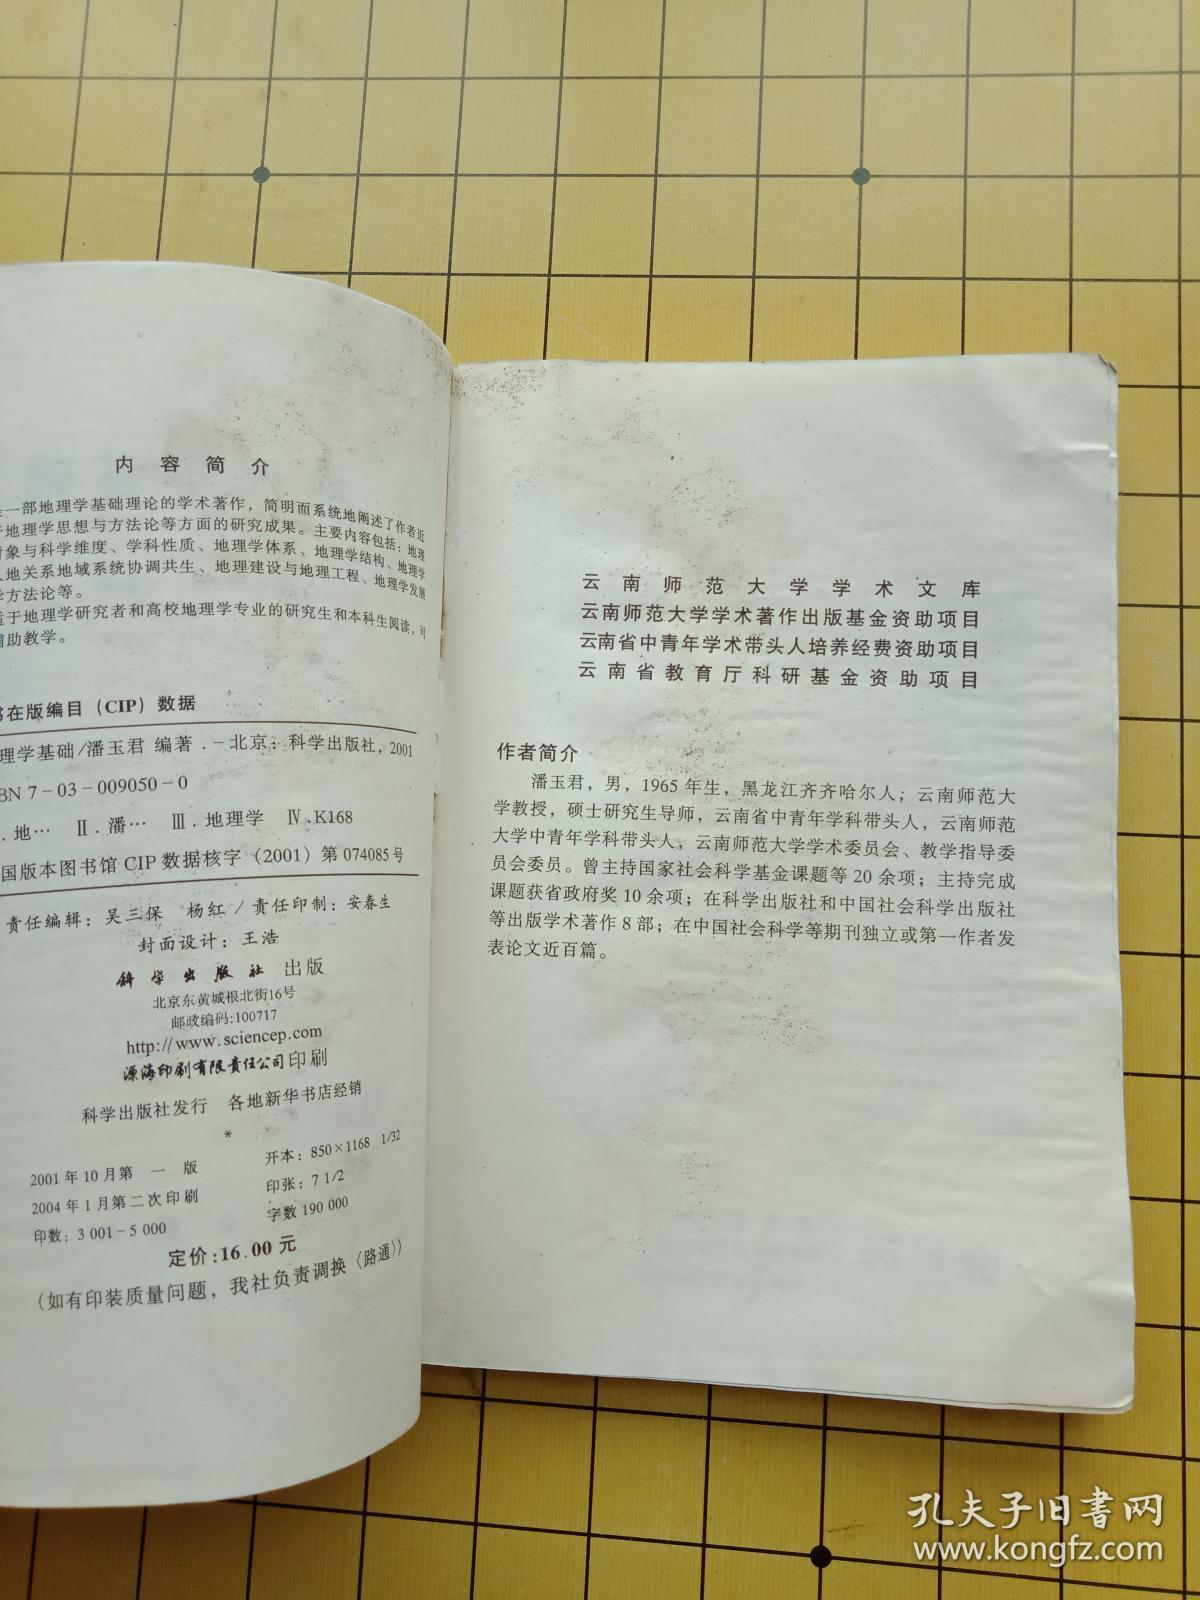 内容简介
一部地理学基础理论的学术著作，简明而系统地阐述了作者近
地理学思想与方法论等方面的研究成果。主要内容包括：地理
对象与科学维度、学科性质、地理学体系、地理学结构、地理学
人地关系地域系统协调共生、地理建设与地理工程、地理学发展
学方法论等。
适于地理学研究者和高校地理学专业的研究生和本科生阅读，可
辅助教学。
书在版编目（CIP）数据
理学基础/潘玉君 编著.－北京：科学出版社，2001
BN 7－03－009050－0
.地… Ⅱ.潘… Ⅲ.地理学 Ⅳ.K168
国版本图书馆 CIP 数据核字（2001）第 074085 号
责任编辑：吴三保 杨红／责任印制：安春生
封面设计：王浩
科学出版社 出版
北京东黄城根北街16号
邮政编码:100717
http://www.sciencep.com
源海印刷有限责任公司印刷
科学出版社发行 各地新华书店经销
*
2001 年 10 月第 一 版 开本：850×1168 1/32
2004 年 1 月第二次印刷 印张：7 1/2
印数：3 001－5 000 字数 190 000
定价：16.00 元
（如有印装质量问题，我社负责调换〈路通〉）
云南师范大学学术文库
云南师范大学学术著作出版基金资助项目
云南省中青年学术带头人培养经费资助项目
云南省教育厅科研基金资助项目
作者简介
潘玉君，男，1965 年生，黑龙江齐齐哈尔人；云南师范大
学教授，硕士研究生导师，云南省中青年学科带头人，云南师范
大学中青年学科带头人，云南师范大学学术委员会、教学指导委
员会委员。曾主持国家社会科学基金课题等 20 余项；主持完成
课题获省政府奖 10 余项；在科学出版社和中国社会科学出版社
等出版学术著作 8 部；在中国社会科学等期刊独立或第一作者发
表论文近百篇。
孔夫子旧书网
www.kongfz.com